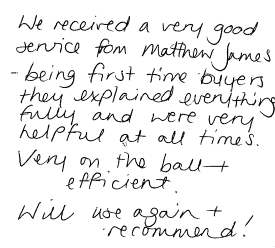 We received a very good
service from Matthew James
- being first time buyers
they explained everything
fully and were very
helpful at all times.
Very on the ball +
efficient.
Will use again +
recommend!